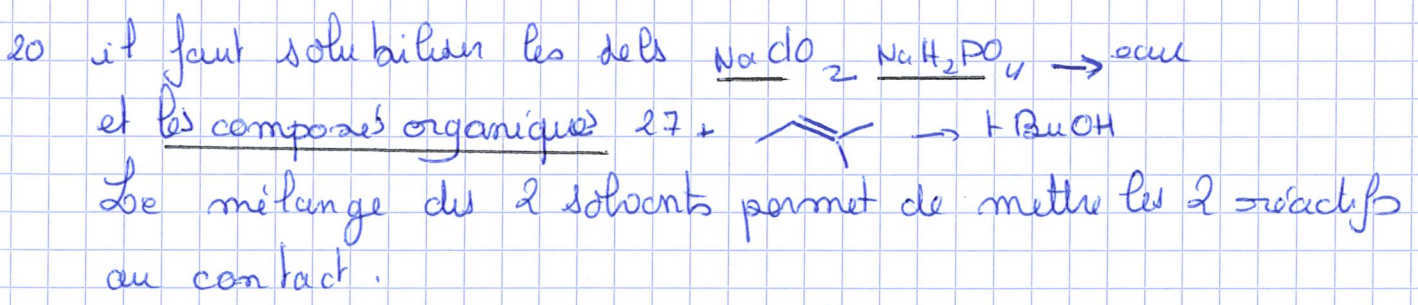 20 il faut solubiliser les sels NaClO2 NaH2PO4 → eau
et les composés organiques 27 + → tBuOH
Le mélange des 2 solvants permet de mettre les 2 réactifs
au contact.